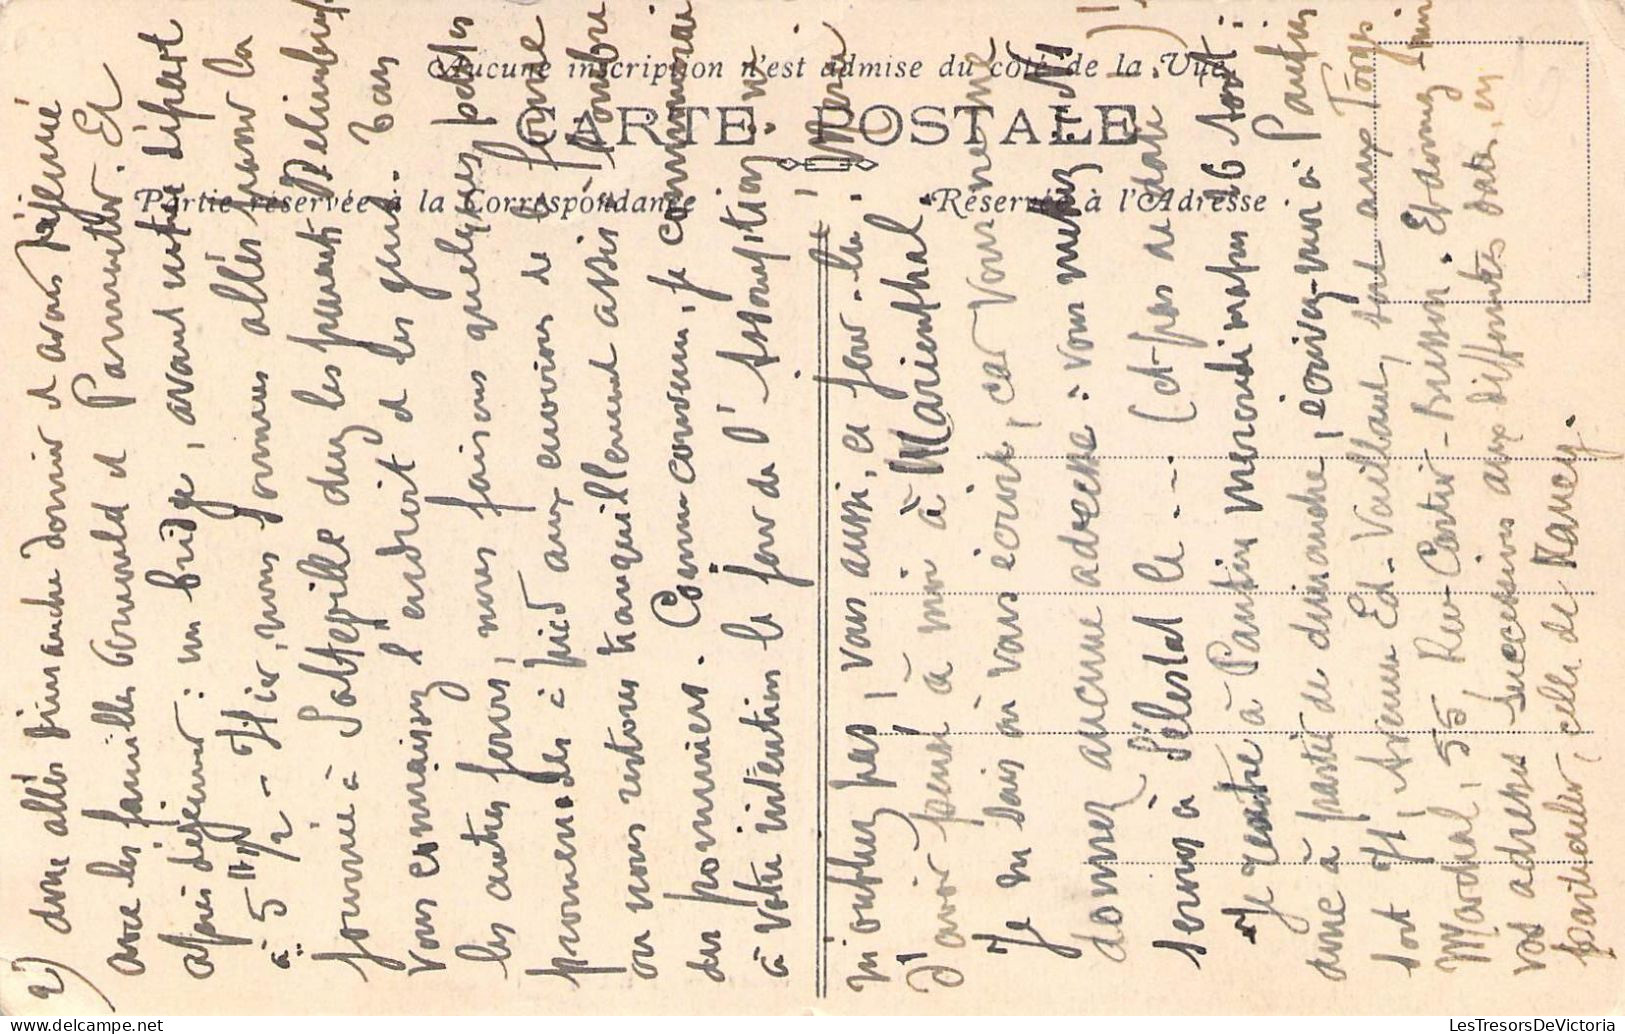 Aucune inscription n'est admise du côté de la Vue
CARTE POSTALE
Partie réservée à la Correspondance
Réservée à l'Adresse
2) donc allés dimanche dernier et avons déjeuné
avec les familles Grunwald et Parmentier. Et
après déjeuner : un bridge, avant notre départ
à 5 H 1/2 - Hier, nous sommes allés passer la
journée à chez les parents
Vous connaissez l'endroit et les gens.
les autres jours, nous faisons quelques petites
promenades à pied aux environs de la
ou nous restons tranquillement assis à l'ombre
des pommiers. Comme convenu, je communierai
à votre intention le jour de l'Assomption.
n'oubliez pas, vous aussi, ce jour-là
d'avoir pensé à moi à Marienthal.
Je ne sais où vous écrire, car vous ne me
donnez aucune adresse : vous mettez
serons à Sélestat le .... (et pas de date !)
Je rentre à Pantin mercredi matin 26 Août :
donc à partir de dimanche, écrivez-moi à Pantin
soit 71, Avenue Ed. Vaillant, soit aux Forges
Martial, 55 Rue Cartier-Bresson. Et donnez-moi
vos adresses successives aux différentes dates, en
particulier, celle de Nancy.
LesTresorsDeVictoria